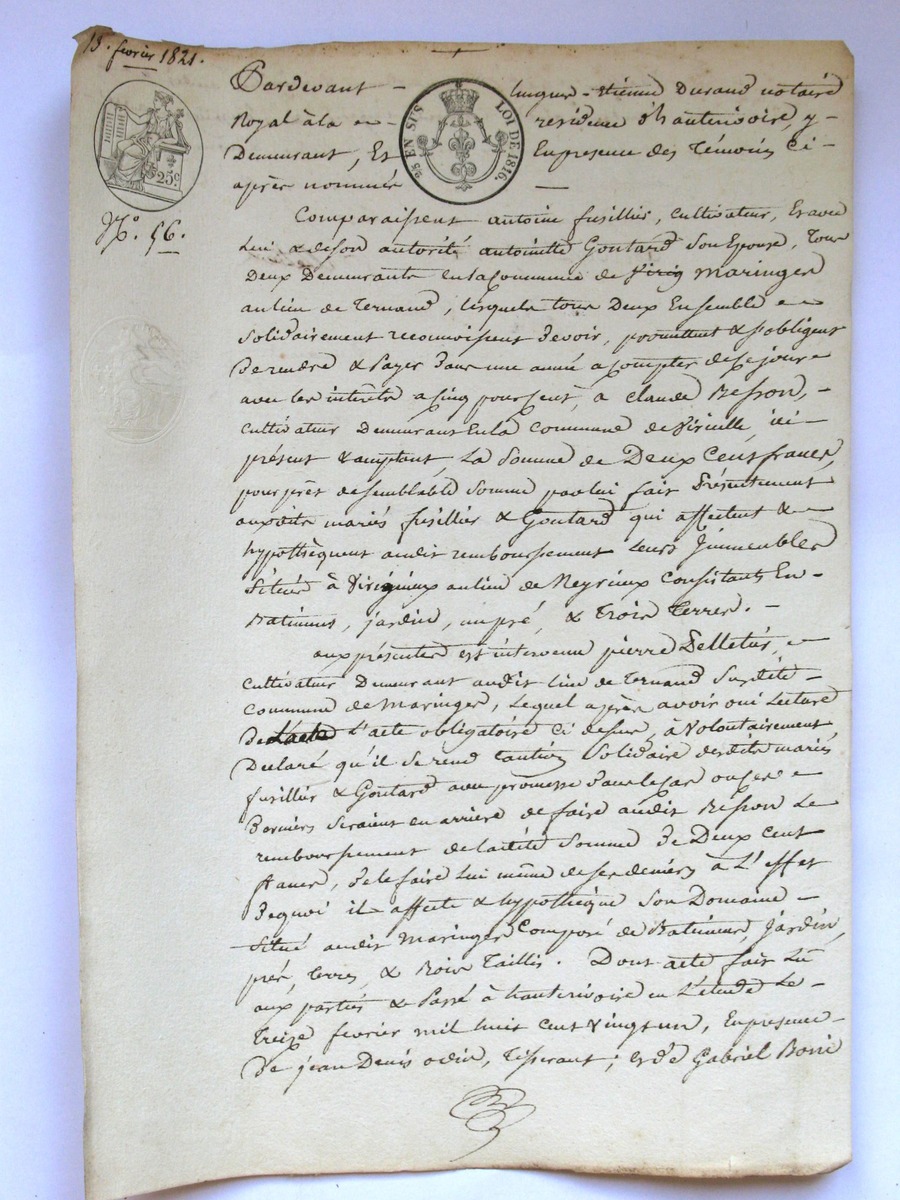 13. fevrier 1821.
Pardevant - Etienne Durand notaire
Royal à la residence d'hauterivoire, y-
Demeurant, Et En presence des Témoins Ci-
après nommés —
25 EN SUS LOI DE 1816.
25c.
N.º 56.
Comparaissent antoine fusillier, Cultivateur, Et avec
Lui & de son autorité antoinette Goutard Son Epouse, Tous
Deux Demeurants En la Commune de Maringes
au lieu de Ternand, lesquels tous Deux Ensemble &
Solidairement reconnoissent Devoir, promettent & s'obligent
De rendre & Payer Dans une année a Compter de ce jour
avec les intérêts a Cinq pour Cent, a Claude Besson,-
Cultivateur Demeurant En la Commune de Virielle, ici-
présent & acceptant, La Somme de Deux Cent francs,
pour prêt de semblable Somme par lui fait Présentement
auxdits mariés fusillier & Goutard qui affectent &
hypothèquent audit remboursement Leurs Immeubles
Situés à Virigneux au lieu de Neyrieux Consistants En-
Batiments, jardin, un pré, & Trois Terres. -
aux présentes est intervenu pierre Pelletier,
Cultivateur Demeurant audit lieu de Ternand Susdite
Commune de Maringes, Lequel après avoir oui Lecture
De L'acte obligatoire Ci dessus, à Volontairement
Déclaré qu'il se rend Caution Solidaire desdits mariés
fusillier & Goutard avec promesse Dans le cas ou ses
Derniers seraient en arrière de faire audit Besson Le
remboursement de ladite Somme De Deux Cent
francs, De le faire Lui même de ses deniers à L'effet
De quoi il affecte & hypothèque Son Domaine-
Situé audit Maringes Composé de Batiments, Jardin,
prés, Terres, & Bois Taillis. Dont acte fait Lu
aux parties & Passé à hauterivoire en L'etude Le-
Treize fevrier mil huit cent vingt un, En presence-
De jean Denis odin, Tisserant; et de Gabriel